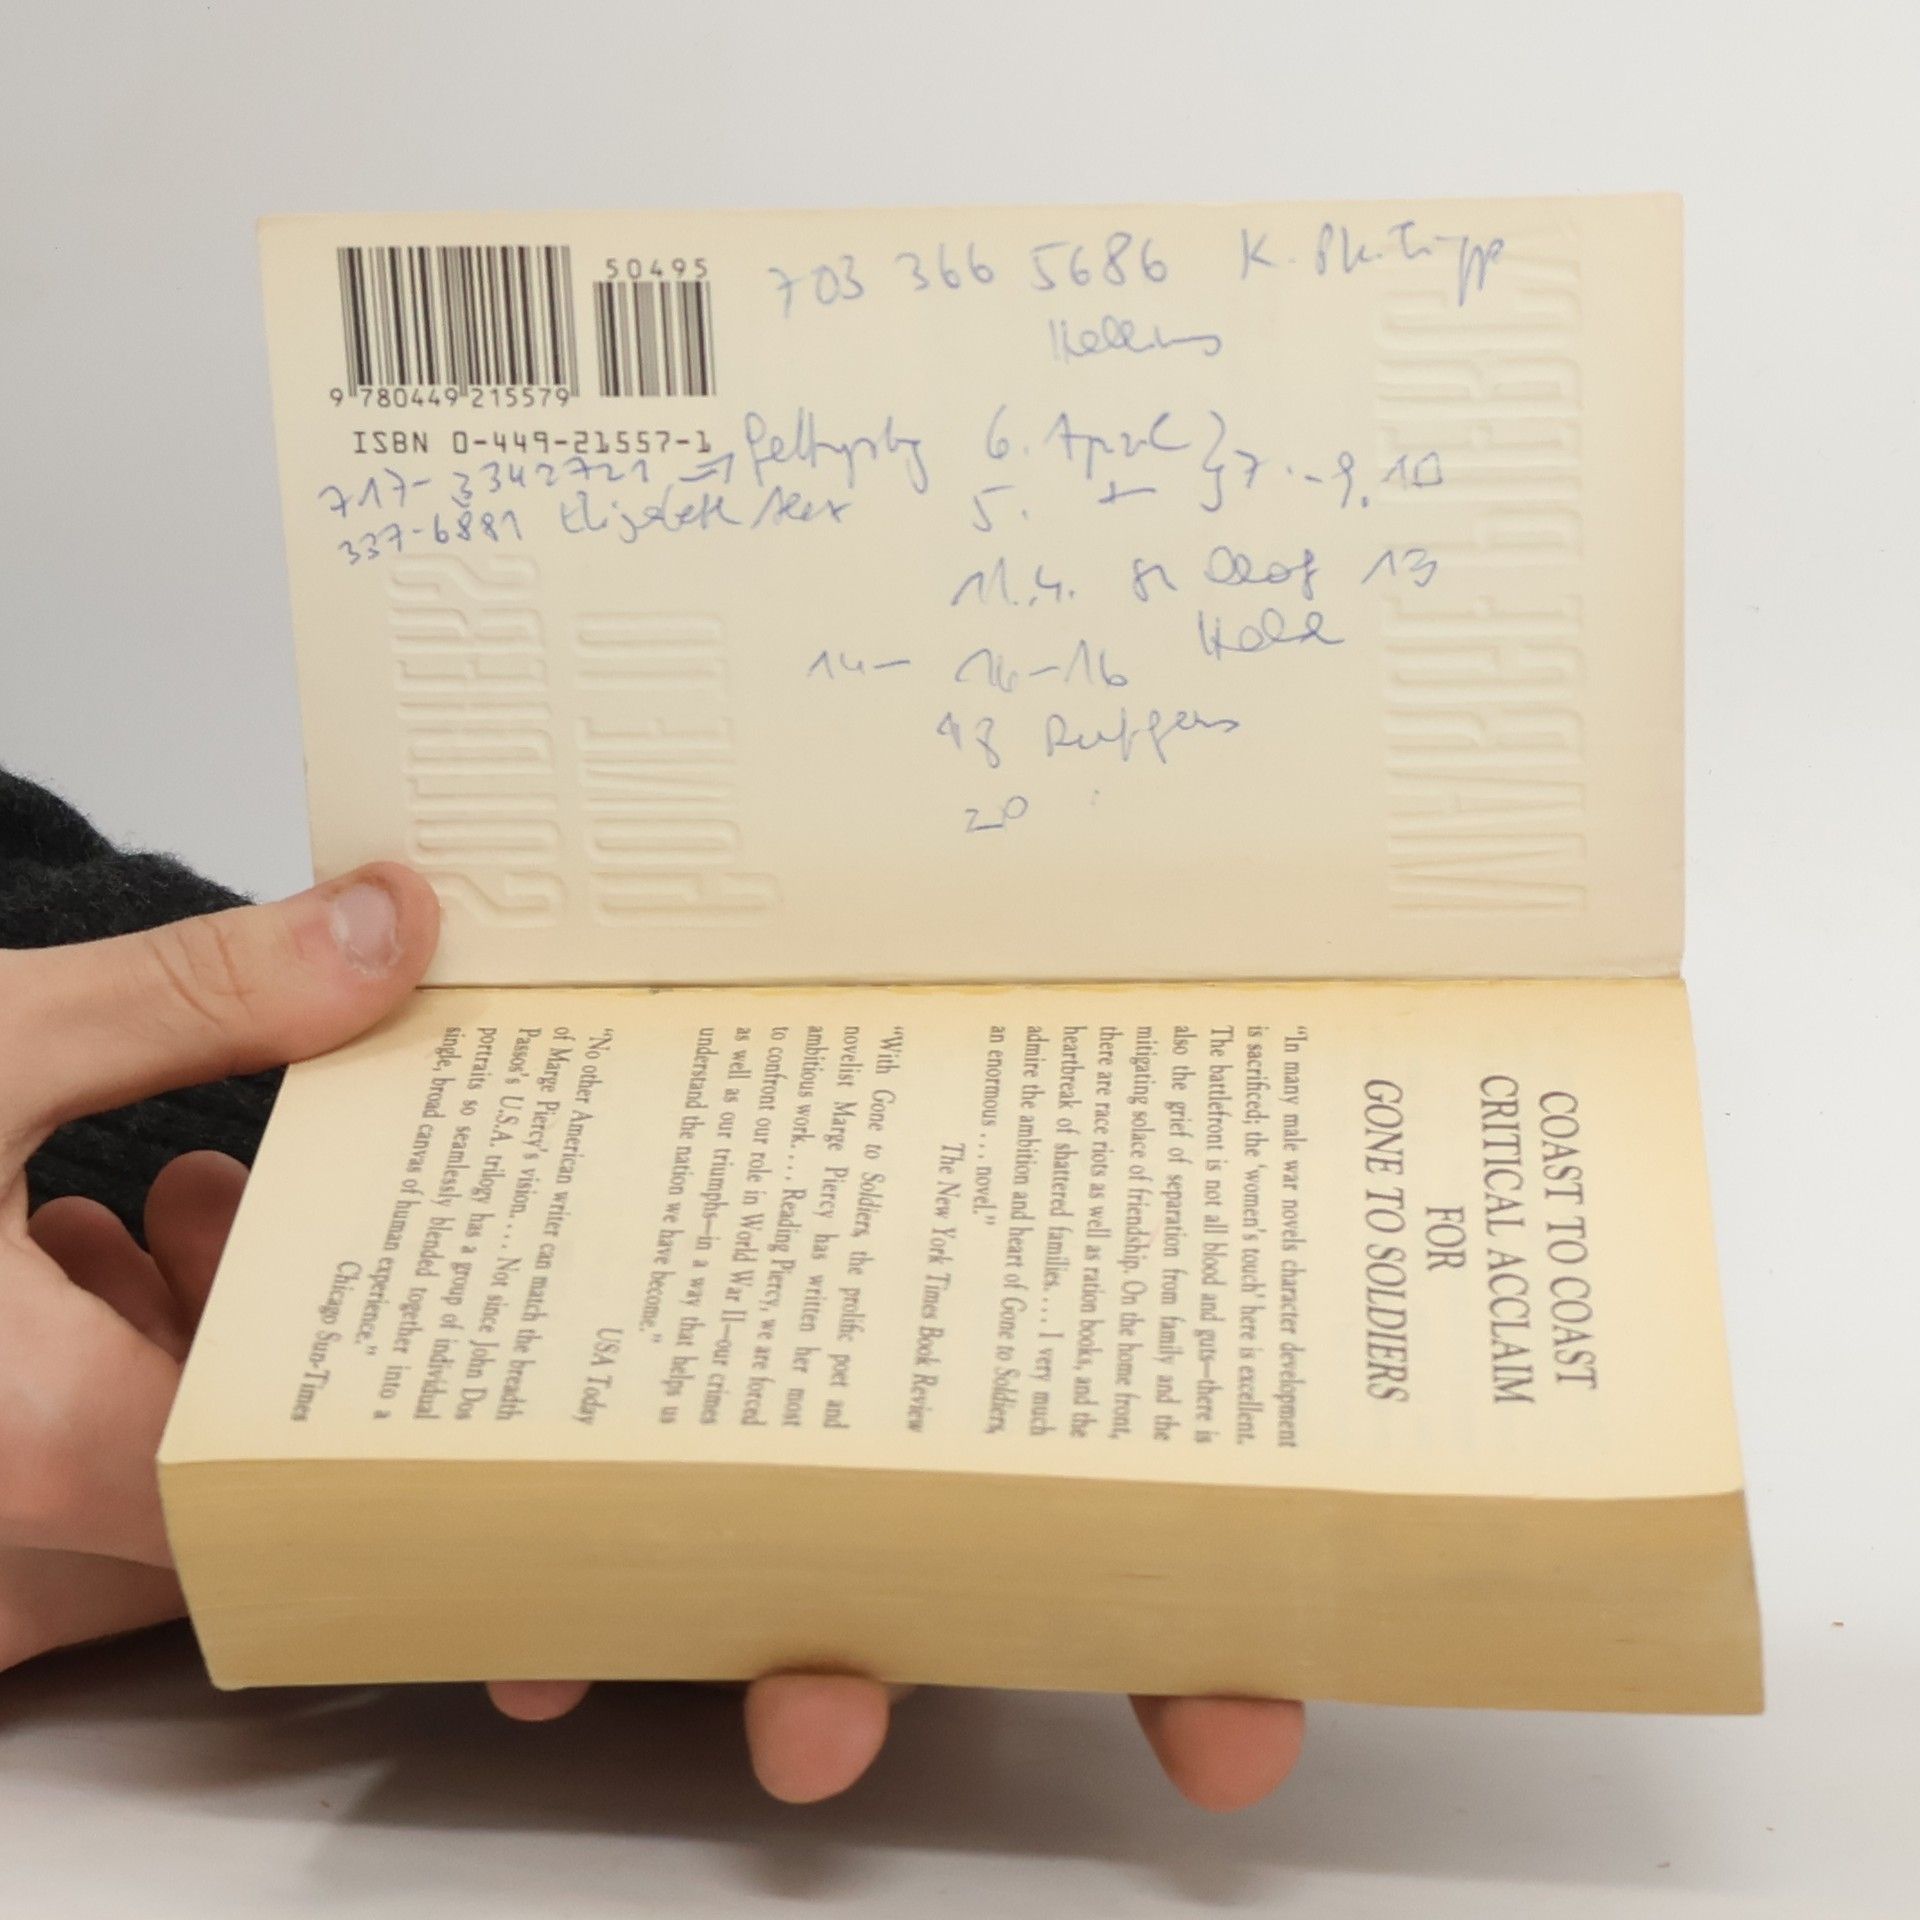 50495
9 780449 215579
ISBN 0-449-21557-1
703 366 5686 K. Philipp
717-3342721 → Gettysbg 6. April } 7.-9.10
337-6881 Elizabeth 5.
11.4. St Olaf 13
14- 14-16
Rutgers
20
MARGE PIERCY
GONE TO
SOLDIERS
COAST TO COAST
CRITICAL ACCLAIM
FOR
GONE TO SOLDIERS
"In many male war novels character development
is sacrificed; the 'women's touch' here is excellent.
The battlefront is not all blood and guts—there is
also the grief of separation from family and the
mitigating solace of friendship. On the home front,
there are race riots as well as ration books, and the
heartbreak of shattered families. . . . I very much
admire the ambition and heart of Gone to Soldiers,
an enormous . . . novel."
The New York Times Book Review
"With Gone to Soldiers, the prolific poet and
novelist Marge Piercy has written her most
ambitious work. . . . Reading Piercy, we are forced
to confront our role in World War II—our crimes
as well as our triumphs—in a way that helps us
understand the nation we have become."
USA Today
"No other American writer can match the breadth
of Marge Piercy's vision. . . . Not since John Dos
Passos's U.S.A. trilogy has a group of individual
portraits so seamlessly blended together into a
single, broad canvas of human experience."
Chicago Sun-Times